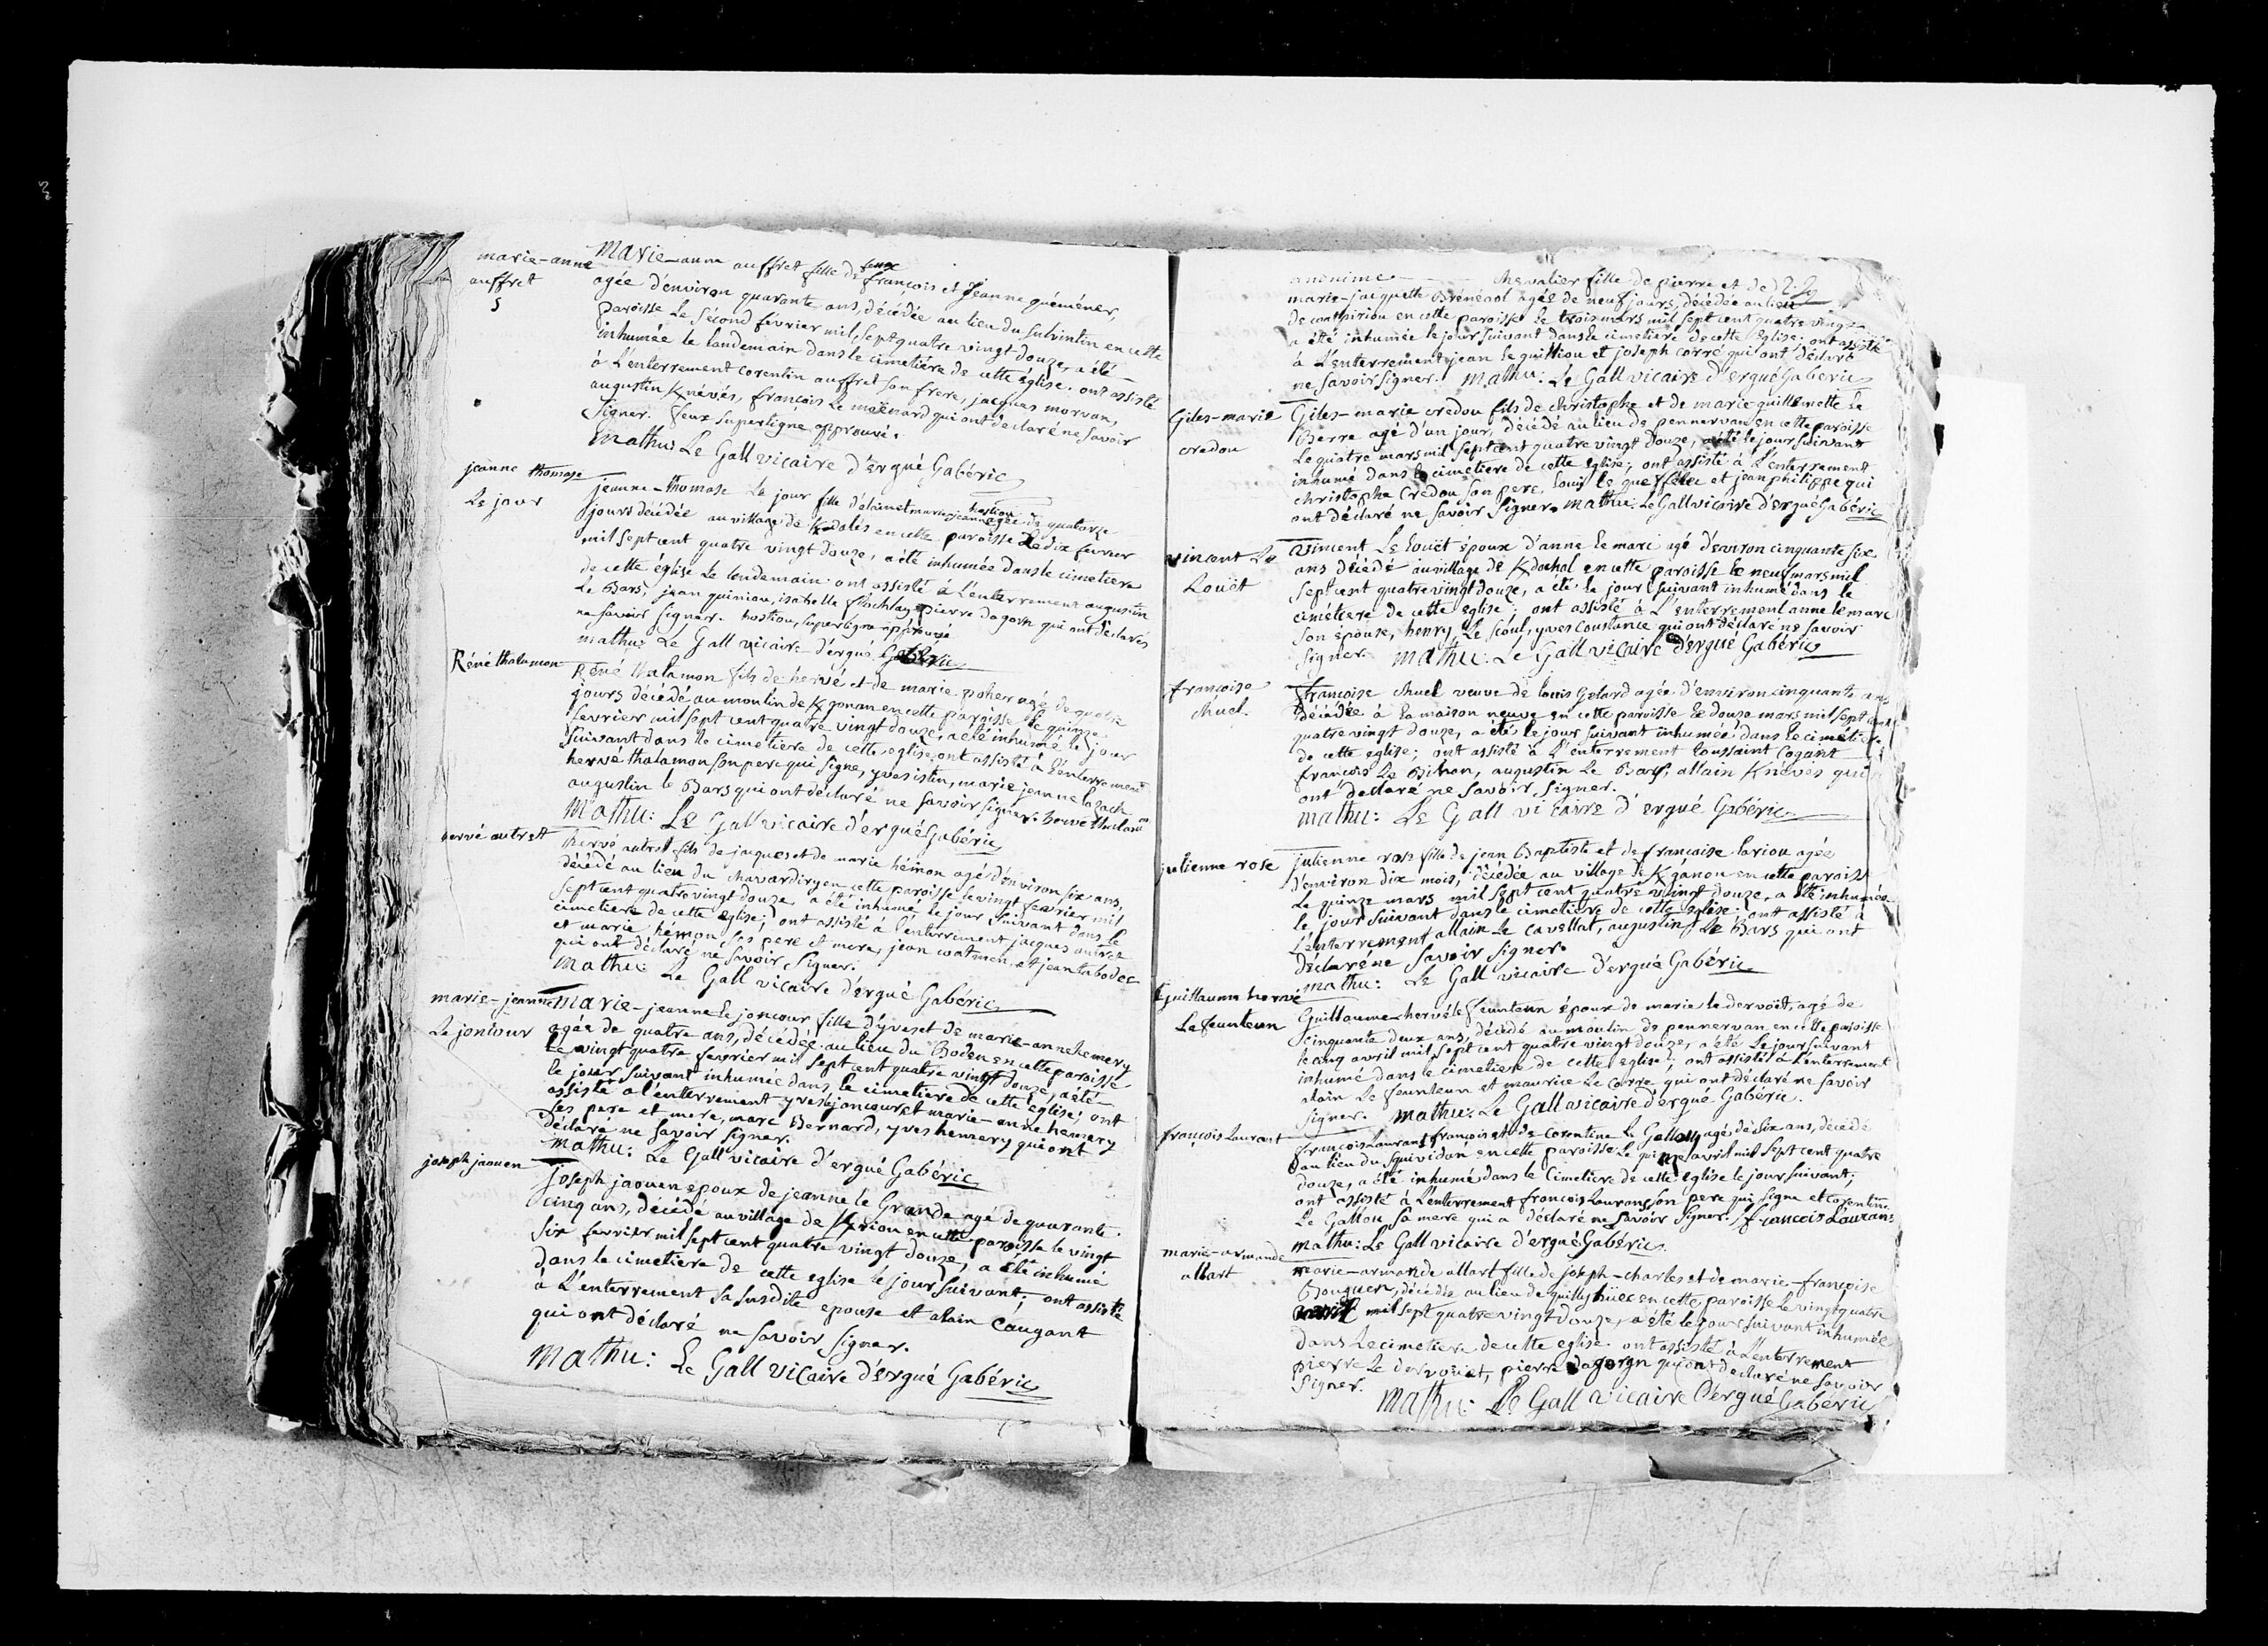 marie-anne
auffret
5
Marie-anne auffret fille de feux françois et Jeanne quéméner,
agée d'environ quarante ans, décédée au lieu du sulvintin en cette
paroisse le sécond février mil, sept quatre vingt douze, a été
inhumée le landemain dans le cimetiére de cette église. ont assisté
à L'enterrement corentin auffret son frere, jacques morvan,
augustin Knévés, françois le mœnard qui ont declaré ne savoir
signer. feux superligne approuvé.
mathu: Le Gall vicaire d'ergué Gabéric
jeanne thomase
Le jour
jeanne-thomase Le jour fille d'alain et marie jeanne hostiou agée de quatorze
jours décédée au village de Kdalés en cette paroisse Le dix fevrier
mil sept cent quatre vingt douze, a été inhumée dans le cimetiere
de cette église Le lendemain ont assisté à L'enterrement augustin
Le Bars, jean quiniou, isabelle flochlay pierre dagorn qui ont déclarés
ne savoir signer. hostiou, superligne approuvé
mathu: Le Gall vicaire d'ergué Gabéric
Réné thalamon
Réné thalamon fils de hérvé et de marie poher agé de quatre
jours décédé au moulin de Kgonan en cette paroisse le quinze
fevrier mil sept cent quatre vingt douze, a été inhumé le jour
suivant dans le cimetiere de cette eglise, ont assisté à l'enterrement
hervé thalamon son pere qui signe, yves istin, marie jeanne lazach
augustin le Bars qui ont déclaré ne savoir signer. herve thalamon
Mathu: Le Gall vicaire d'ergué Gabéric
hervé autret
hervé autret fils de jacques et de marie hémon agé d'environ six ans,
décédé au lieu du chavardiry en cette paroisse le vingt fevrier mil
sept cent quatre vingt douze, a été inhumé le jour suivant dans le
cimetiere de cette eglise; ont assisté à l'enterriment jacques autret
et marie hemon ses pere et mere, jean watmen et jean tabodec
qui ont déclaré ne savoir signer.
Mathu: Le Gall vicaire d'ergué Gabéric
marie-jeanne
Le joncour
Marie-jeanne le joncour fille d'yves et de marie-anne hemery
agée de quatre ans, décédée au lieu du Boden en cette paroisse
Le vingt quatre fevrier mil sept cent quatre vingt douze, a été
le jour suivant inhumée dans le cimetiere de cette église; ont
assisté a l'enterrement yves le joncour et marie-anne hemery
ses pere et mere, marc Bernard, yves hemery qui ont
déclaré ne savoir signer.
mathu: Le Gall vicaire d'ergué Gabéric
joseph jaouen
joseph jaouen epoux de jeanne le Grande agé de quarante
cinq ans, décédé au village de Kriou en cette paroisse le vingt
six fevrier mil sept cent quatre vingt douze, a été inhumé
dans le cimetiere de cette eglise le jour suivant; ont assisté
à L'enterrement sa susdite epouse et alain Caugant
qui ont déclaré ne savoir signer.
Mathu: Le Gall vicaire d'ergué Gabéric
anonime chevalier fille de pierre et de
marie-jacquette Brénéol agée de neuf jours, décédée au lieu
de congirion en cette paroisse le trois mars mil sept cent quatre vingt
a été inhumée le jour suivant dans le cimetiere de cette Eglise; ont assisté
à L'enterrement jean le guilliou et joseph corré qui ont déclaré
ne savoir signer. Mathu: Le Gall vicaire d'ergué Gaberic
Giles-marie
credou
Giles-marie credou fils de christophe et de marie guillemette Le
Berre agé d'un jour, décédé au lieu de pennervan en cette paroisse
Le quatre mars mil sept cent quatre vingt douze, a été le jour suivant
inhumé dans le cimetiere de cette eglise; ont assisté à L'enterrement
christophe Credou son pere, louis le queffelec et jean philippe qui
ont déclaré ne savoir signer. Mathu: Le Gall vicaire d'ergué Gabéric
vincent Le
Louët
Vincent Le Louët époux d'anne le marc agé d'environ cinquante six
ans décédé au village de Kdochal en cette paroisse le neuf mars mil
sept cent quatre vingt douze, a été le jour suivant inhumé dans le
cimétiere de cette eglise; ont assisté à L'enterrement anne le marc
son épouse, henry Le scoul, yves coustance qui ont déclaré ne savoir
signer. Mathu: Le Gall vicaire d'ergué Gabéric
françoise
chuel.
françoise chuel veuve de louis Gelard agée d'environ cinquante ans
décédée à la maison neuve en cette paroisse le douze mars mil sept cent
quatre vingt douze, a été le jour suivant inhumée dans le cimetiere
de cette eglise; ont assisté à l'enterrement toussaint Cogant
françois Le Bihan, augustin Le Bars, allain Knéves qui
ont déclaré ne savoir signer.
mathu: Le Gall vicaire d'ergué Gabéric
julienne rose
julienne rose fille de jean Baptiste et de françoise lariou agée
d'environ dix mois, décédée au village de Kganou en cette paroisse
Le quinze mars mil sept cent quatre vingt douze, a été inhumée
le jour suivant dans le cimetiere de cette eglise. ont assisté à
L'enterrement allain Le cavellat, augustin Le Bars qui ont
déclaré ne savoir signer.
mathu: Le Gall vicaire d'ergué Gabéric
Guillaume hervé
Le feunteun
Guillaume hervé le feunteun époux de marie le dervoët, agé de
cinquante deux ans, décédé au moulin de pennervan en cette paroisse
le cinq avril mil sept cent quatre vingt douze, a été Le jour suivant
inhumé dans le cimetiere de cette eglise; ont assisté à L'enterrement
alain Le feunteun et maurice Le Corre qui ont déclaré ne savoir
signer. Mathu: Le Gall vicaire d'ergué Gabéric.
françois Laurant
françois Laurant françois et de Corentine Le Gallou agé de six ans, décédé
au lieu du squividan en cette paroisse Le quinze avril mil sept cent quatre
douze, a été inhumé dans le Cimetiere de cette eglise le jour suivant;
ont assisté à L'enterrement françois Laurans son pere qui signe et Corentine
Le Gallou sa mere qui a déclaré ne savoir signer. françois Laurans
Mathu: Le Gall vicaire d'ergué Gabéric.
marie-armande
allart
marie-armande allart fille de joseph-charles et de marie-françoise
Bouguen, décédée au lieu de quillyhüec en cette paroisse Le vingt quatre
avril mil sept quatre vingt douze, a été le jour suivant inhumée
dans Le cimetiere de cette eglise. ont assisté à L'enterrement
pierre Le dervoüet, pierre dagorn qui ont déclaré ne savoir
signer.
Mathu: Le Gall vicaire d'ergué Gabéric